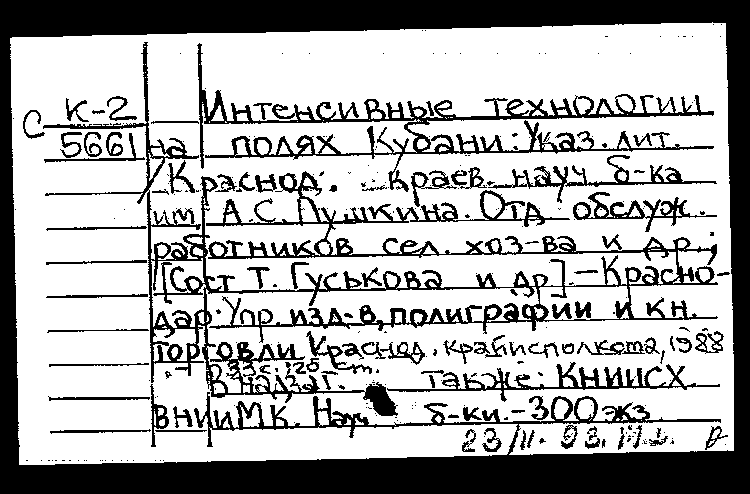 С К-2 Интенсивные технологии
5661 на полях Кубани: Указ. лит.
/ Краснод. краев. науч б-ка
им. А.С. Пушкина. Отд обслуж.
работников сел. хоз-ва и др.;
[Сост Т. Гуськова и др]. - Красно-
дар: Упр. изд-в, полиграфии и кн.
торговли Краснод. крайисполкома, 1988
. - 33 с.; 20 см.
В надзаг. также: КНИИСХ.
ВНИИМК. Науч б-ки. - 300 экз